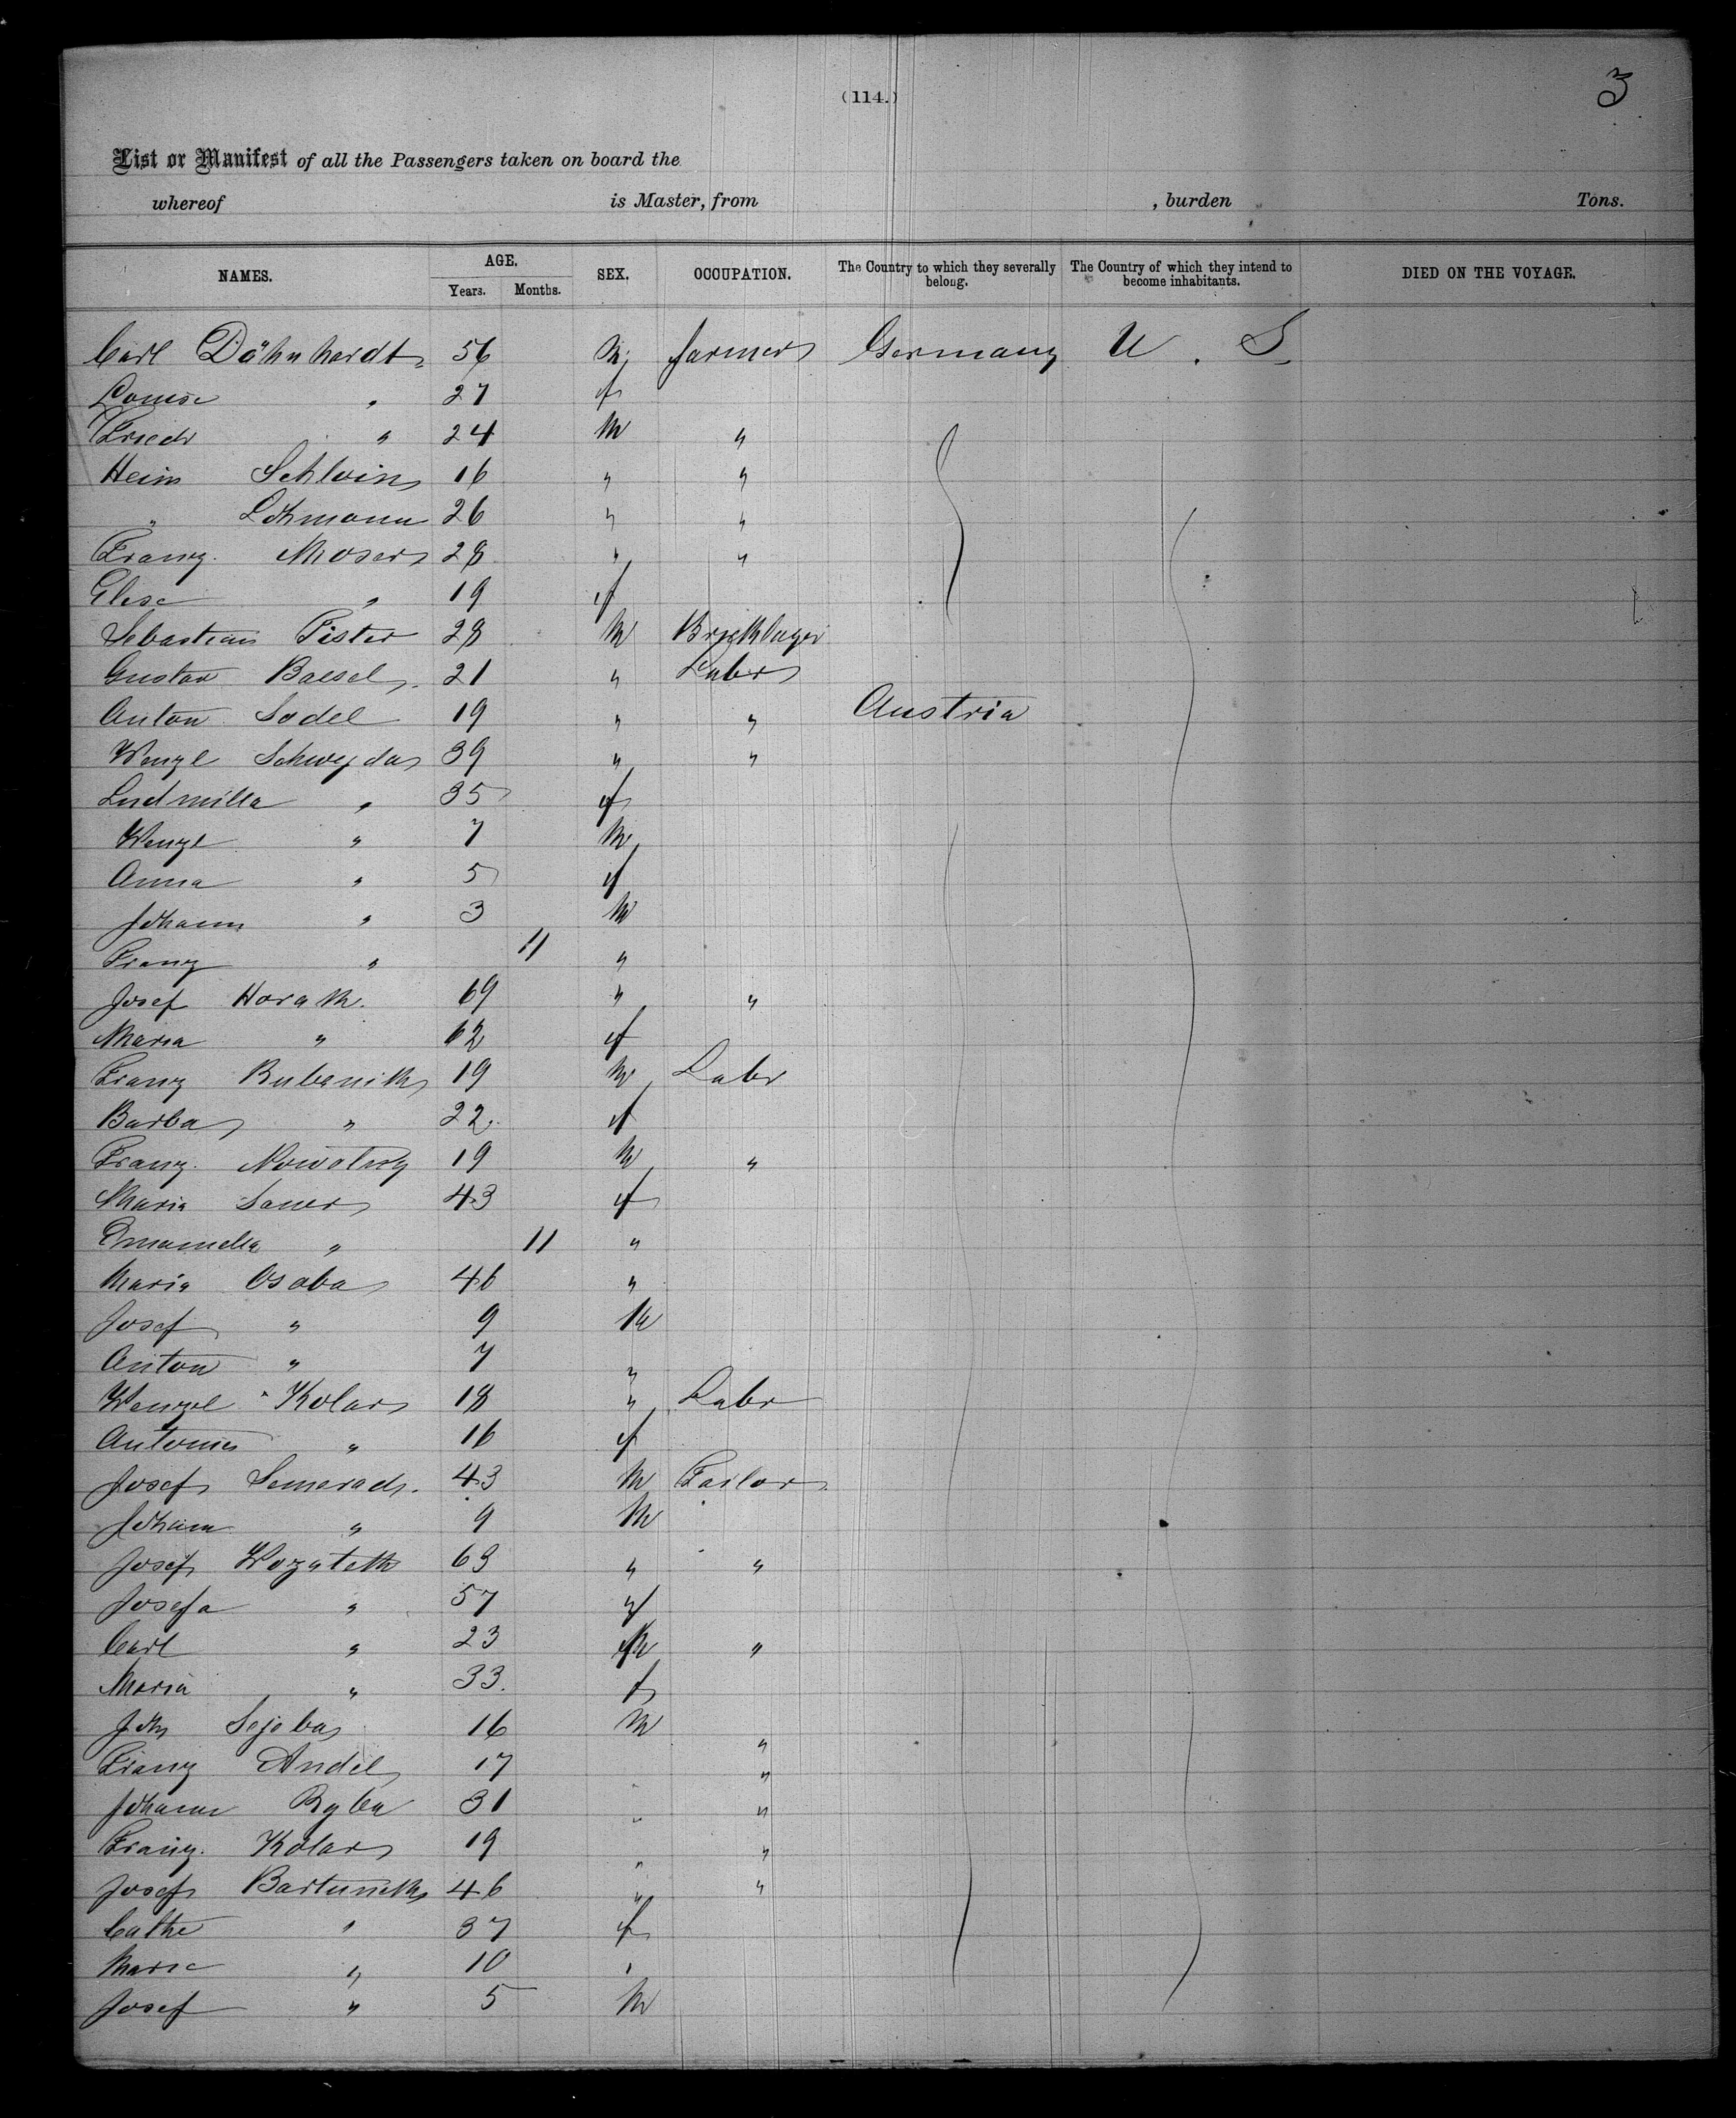 (114.)
3
List or Manifest of all the Passengers taken on board the
whereof is Master, from , burden Tons.
NAMES. AGE. SEX. OCCUPATION. The Country to which they severally belong. The Country of which they intend to become inhabitants. DIED ON THE VOYAGE.
Years. Months.
Carl Dähnhardt 56 M farmer Germany U. S.
Louise " 27 f
Friedr " 24 M "
Heinr Schloin 16 " "
" Lohmann 26 " "
Franz Moser 28 " "
Elise " 19 f
Sebastian Pister 28 M Bricklayer
Gustav Baesel 21 " Labr
Anton Sodel 19 " " Austria
Wenzl Schwejda 39 " "
Ludmilla " 35 f
Wenzl " 7 M
Anna " 5 f
Johann " 3 M
Franz " 11 "
Josef Horak 69 " "
Maria " 62 f
Franz Rubenik 19 M Labr
Barba " 22 f
Franz Nowotny 19 M "
Maria Sauer 43 f
Emanuela " 11 "
Maria Osoba 46 "
Josef " 9 M
Anton " 7 "
Wenzel Kolar 18 " Labr
Antonie " 16 f
Josef Semerad 43 M Tailor
Johann " 9 M
Josef Wozatek 63 " "
Josefa " 57 f
Carl " 23 M "
Maria " 33 f
Joh Sejeba 16 M "
Franz Andel 17 "
Johann Ryba 31 " "
Franz Kolar 19 " "
Josef Bartunek 46 " "
Cathe " 37 f
Marie " 10 "
Josef " 5 M